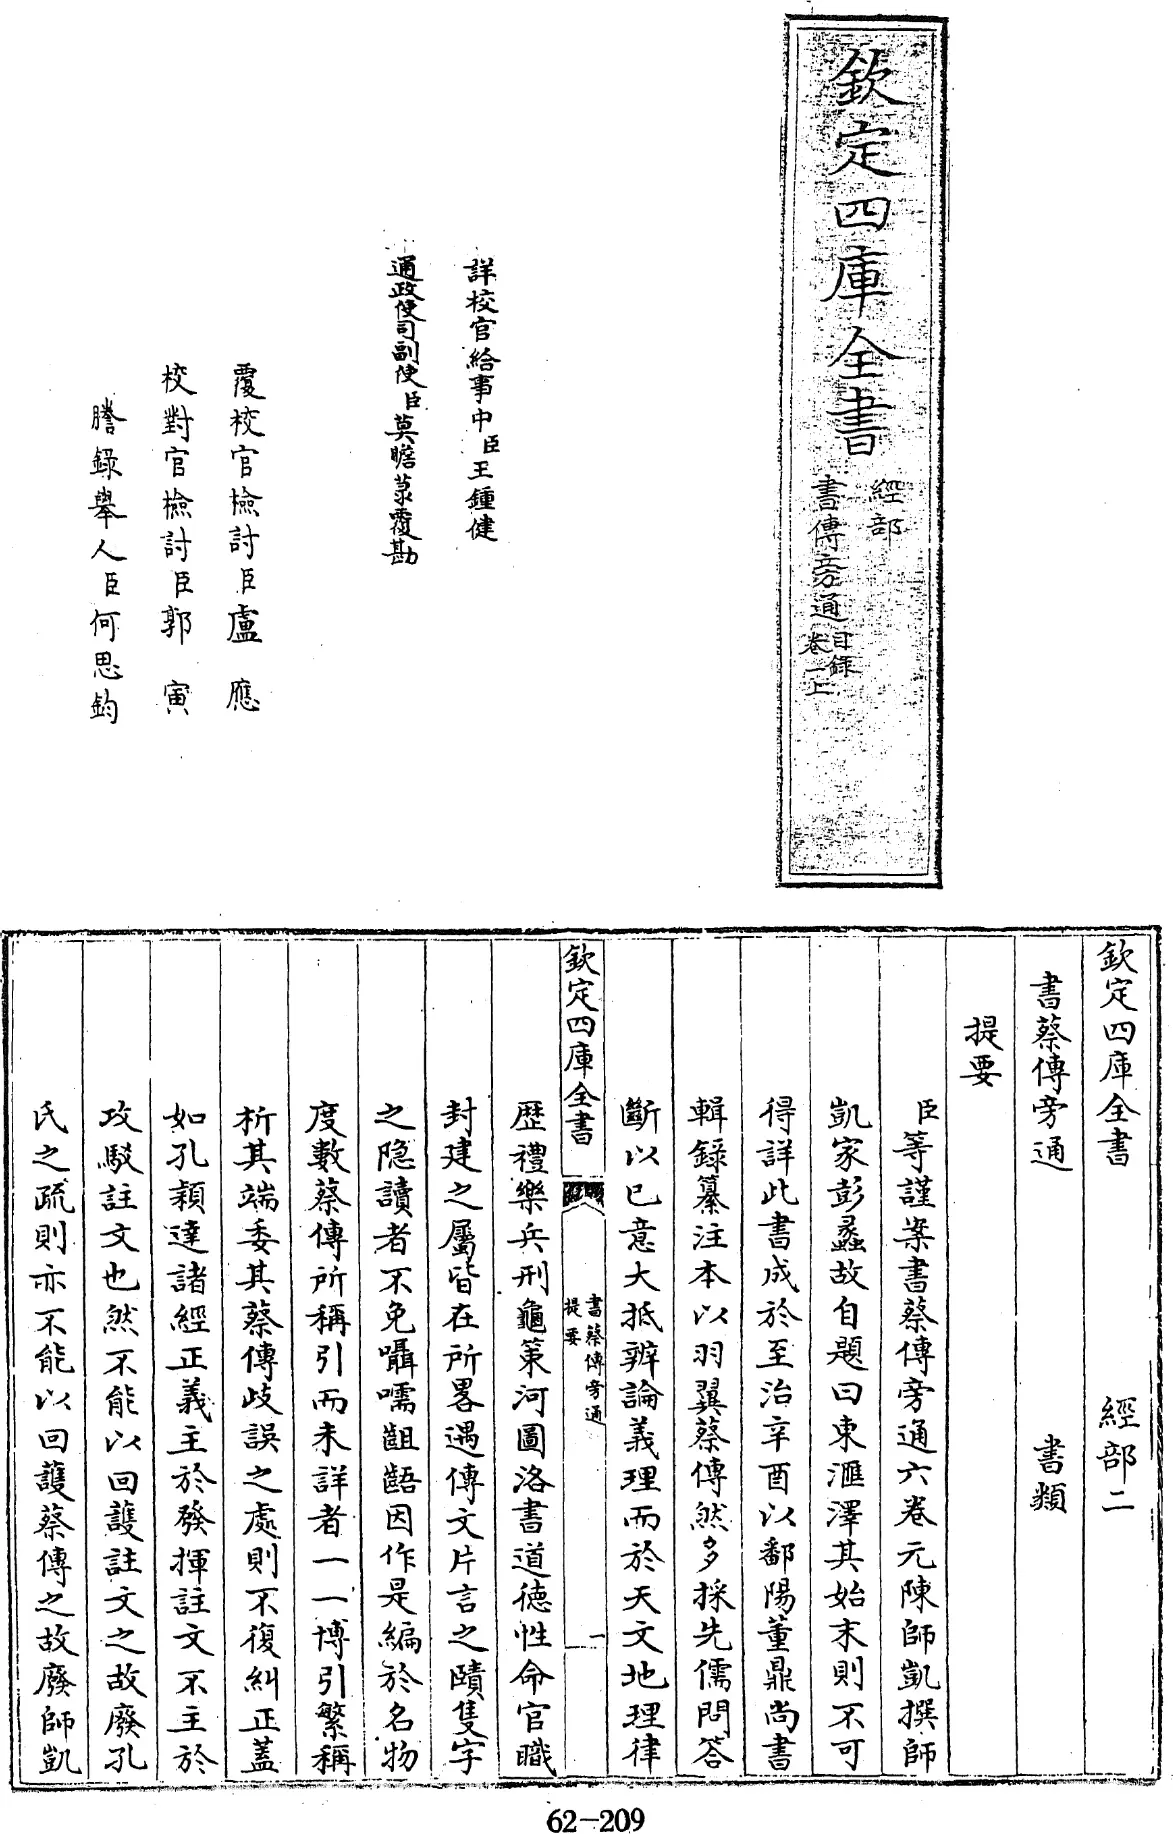 欽定四庫全書
經部
書傳旁通
目録
卷一上
詳校官給事中臣王鍾健
通政使司副使臣莫瞻菉覆勘
覆校官檢討臣盧應
校對官檢討臣郭寅
謄錄舉人臣何思鈞
欽定四庫全書 經部二
書蔡傳旁通 書類
提要
臣等謹案書蔡傳旁通六卷元陳師凱撰師
凱家彭蠡故自題曰東滙澤其始末則不可
得詳此書成於至治辛酉以鄱陽董鼎尚書
輯録纂注本以羽翼蔡傳然多採先儒問答
斷以已意大抵辨論義理而於天文地理律
欽定四庫全書
書蔡傳旁通
提要
一
歴禮樂兵刑龜策河圖洛書道德性命官職
封建之屬皆在所畧遇傳文片言之賾隻字
之隠讀者不免囁嚅齟齬因作是編於名物
度數蔡傳所稱引而未詳者一一博引繁稱
析其端委其蔡傳歧誤之處則不復糾正蓋
如孔穎達諸經正義主於發揮註文不主於
攻駁註文也然不能以回護註文之故廢孔
氏之疏則亦不能以回護蔡傳之故廢師凱
62-209